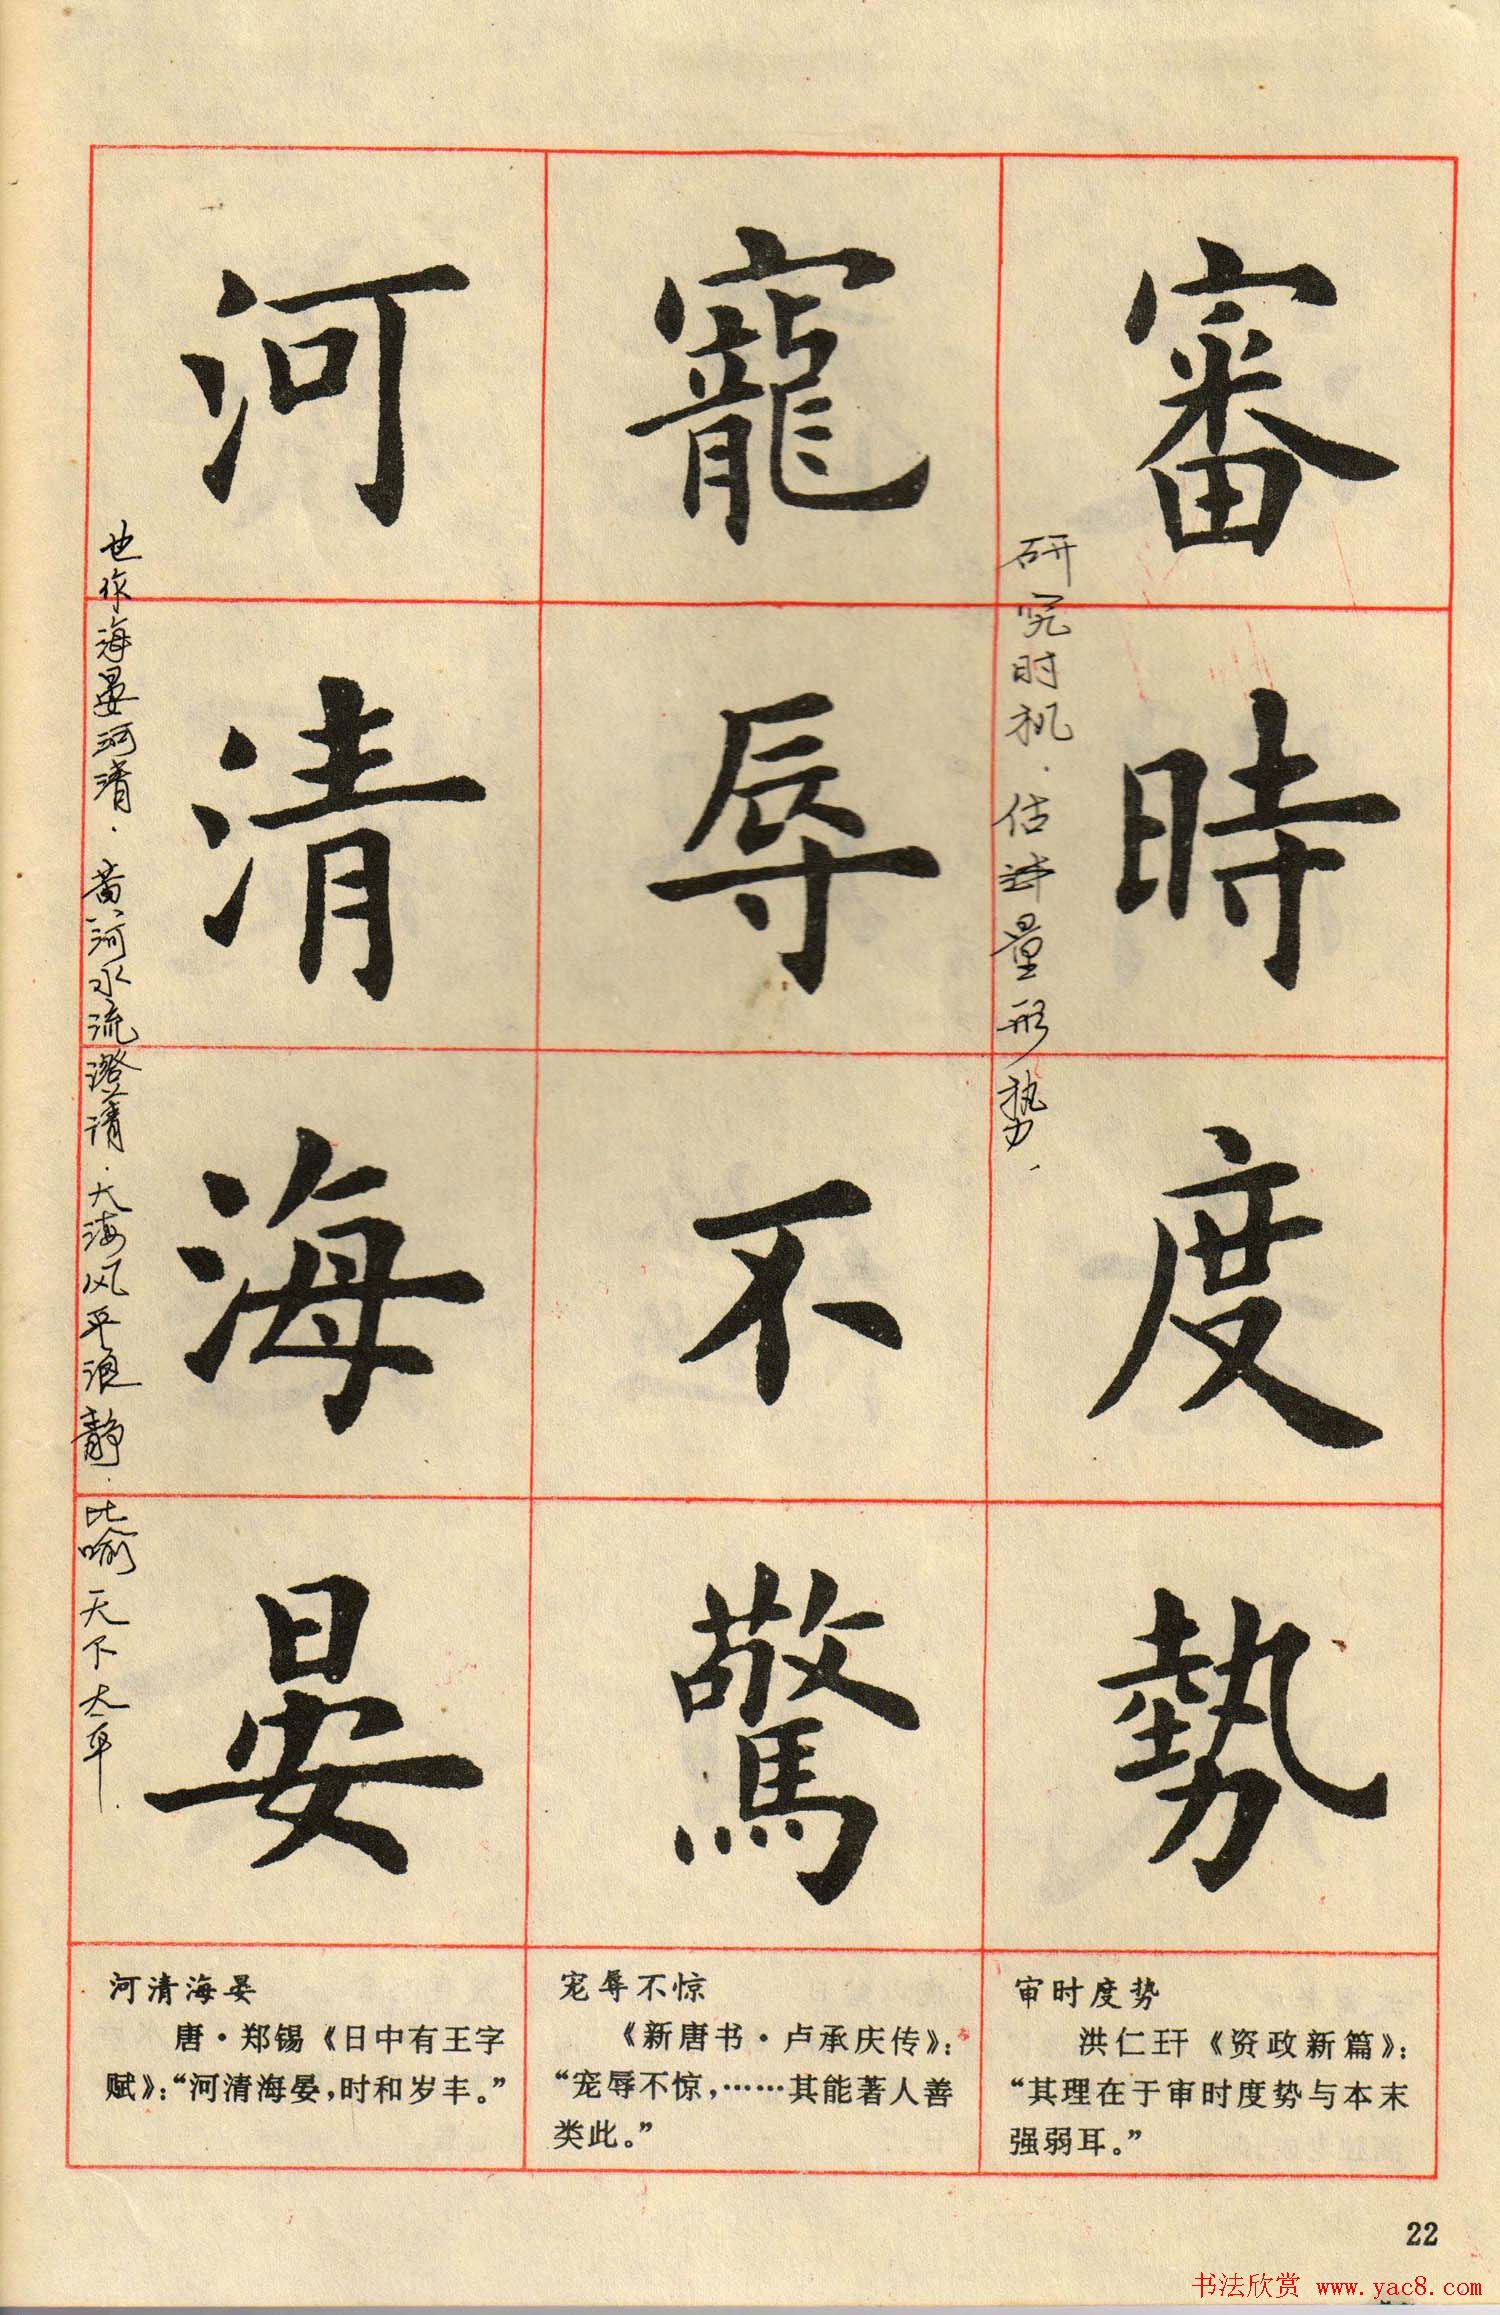 審時度勢
研究时机．估计量形势．
寵辱不驚
河清海晏
也作海晏河清．黄河水流澄清．大海风平浪静．比喻天下太平．
审时度势
洪仁玕《资政新篇》：
“其理在于审时度势与本末
强弱耳。”
宠辱不惊
《新唐书·卢承庆传》：
“宠辱不惊，……其能著人善
类此。”
河清海晏
唐·郑锡《日中有王字
赋》：“河清海晏，时和岁丰。”
22
书法欣赏 www.yac8.com